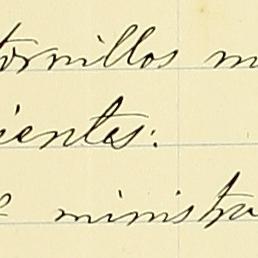 tornillos m
ientes:
e ministra